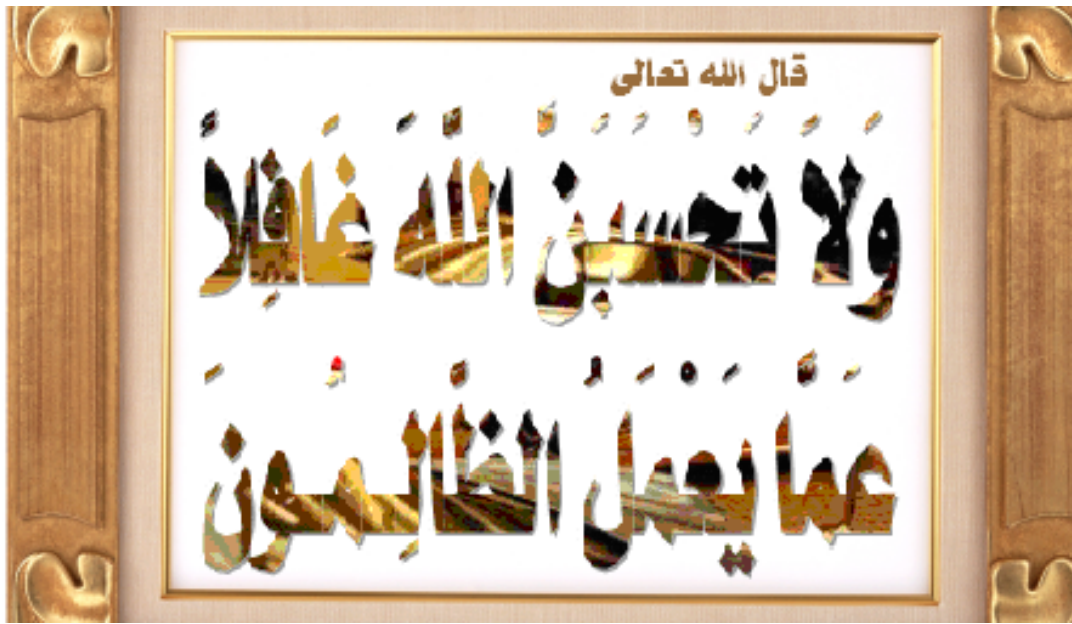 قال الله تعالى
وَلاَ تَحْسَبَنَّ اللَّهَ غَافِلاً
عَمَّا يَعْمَلُ الظَّالِمُونَ